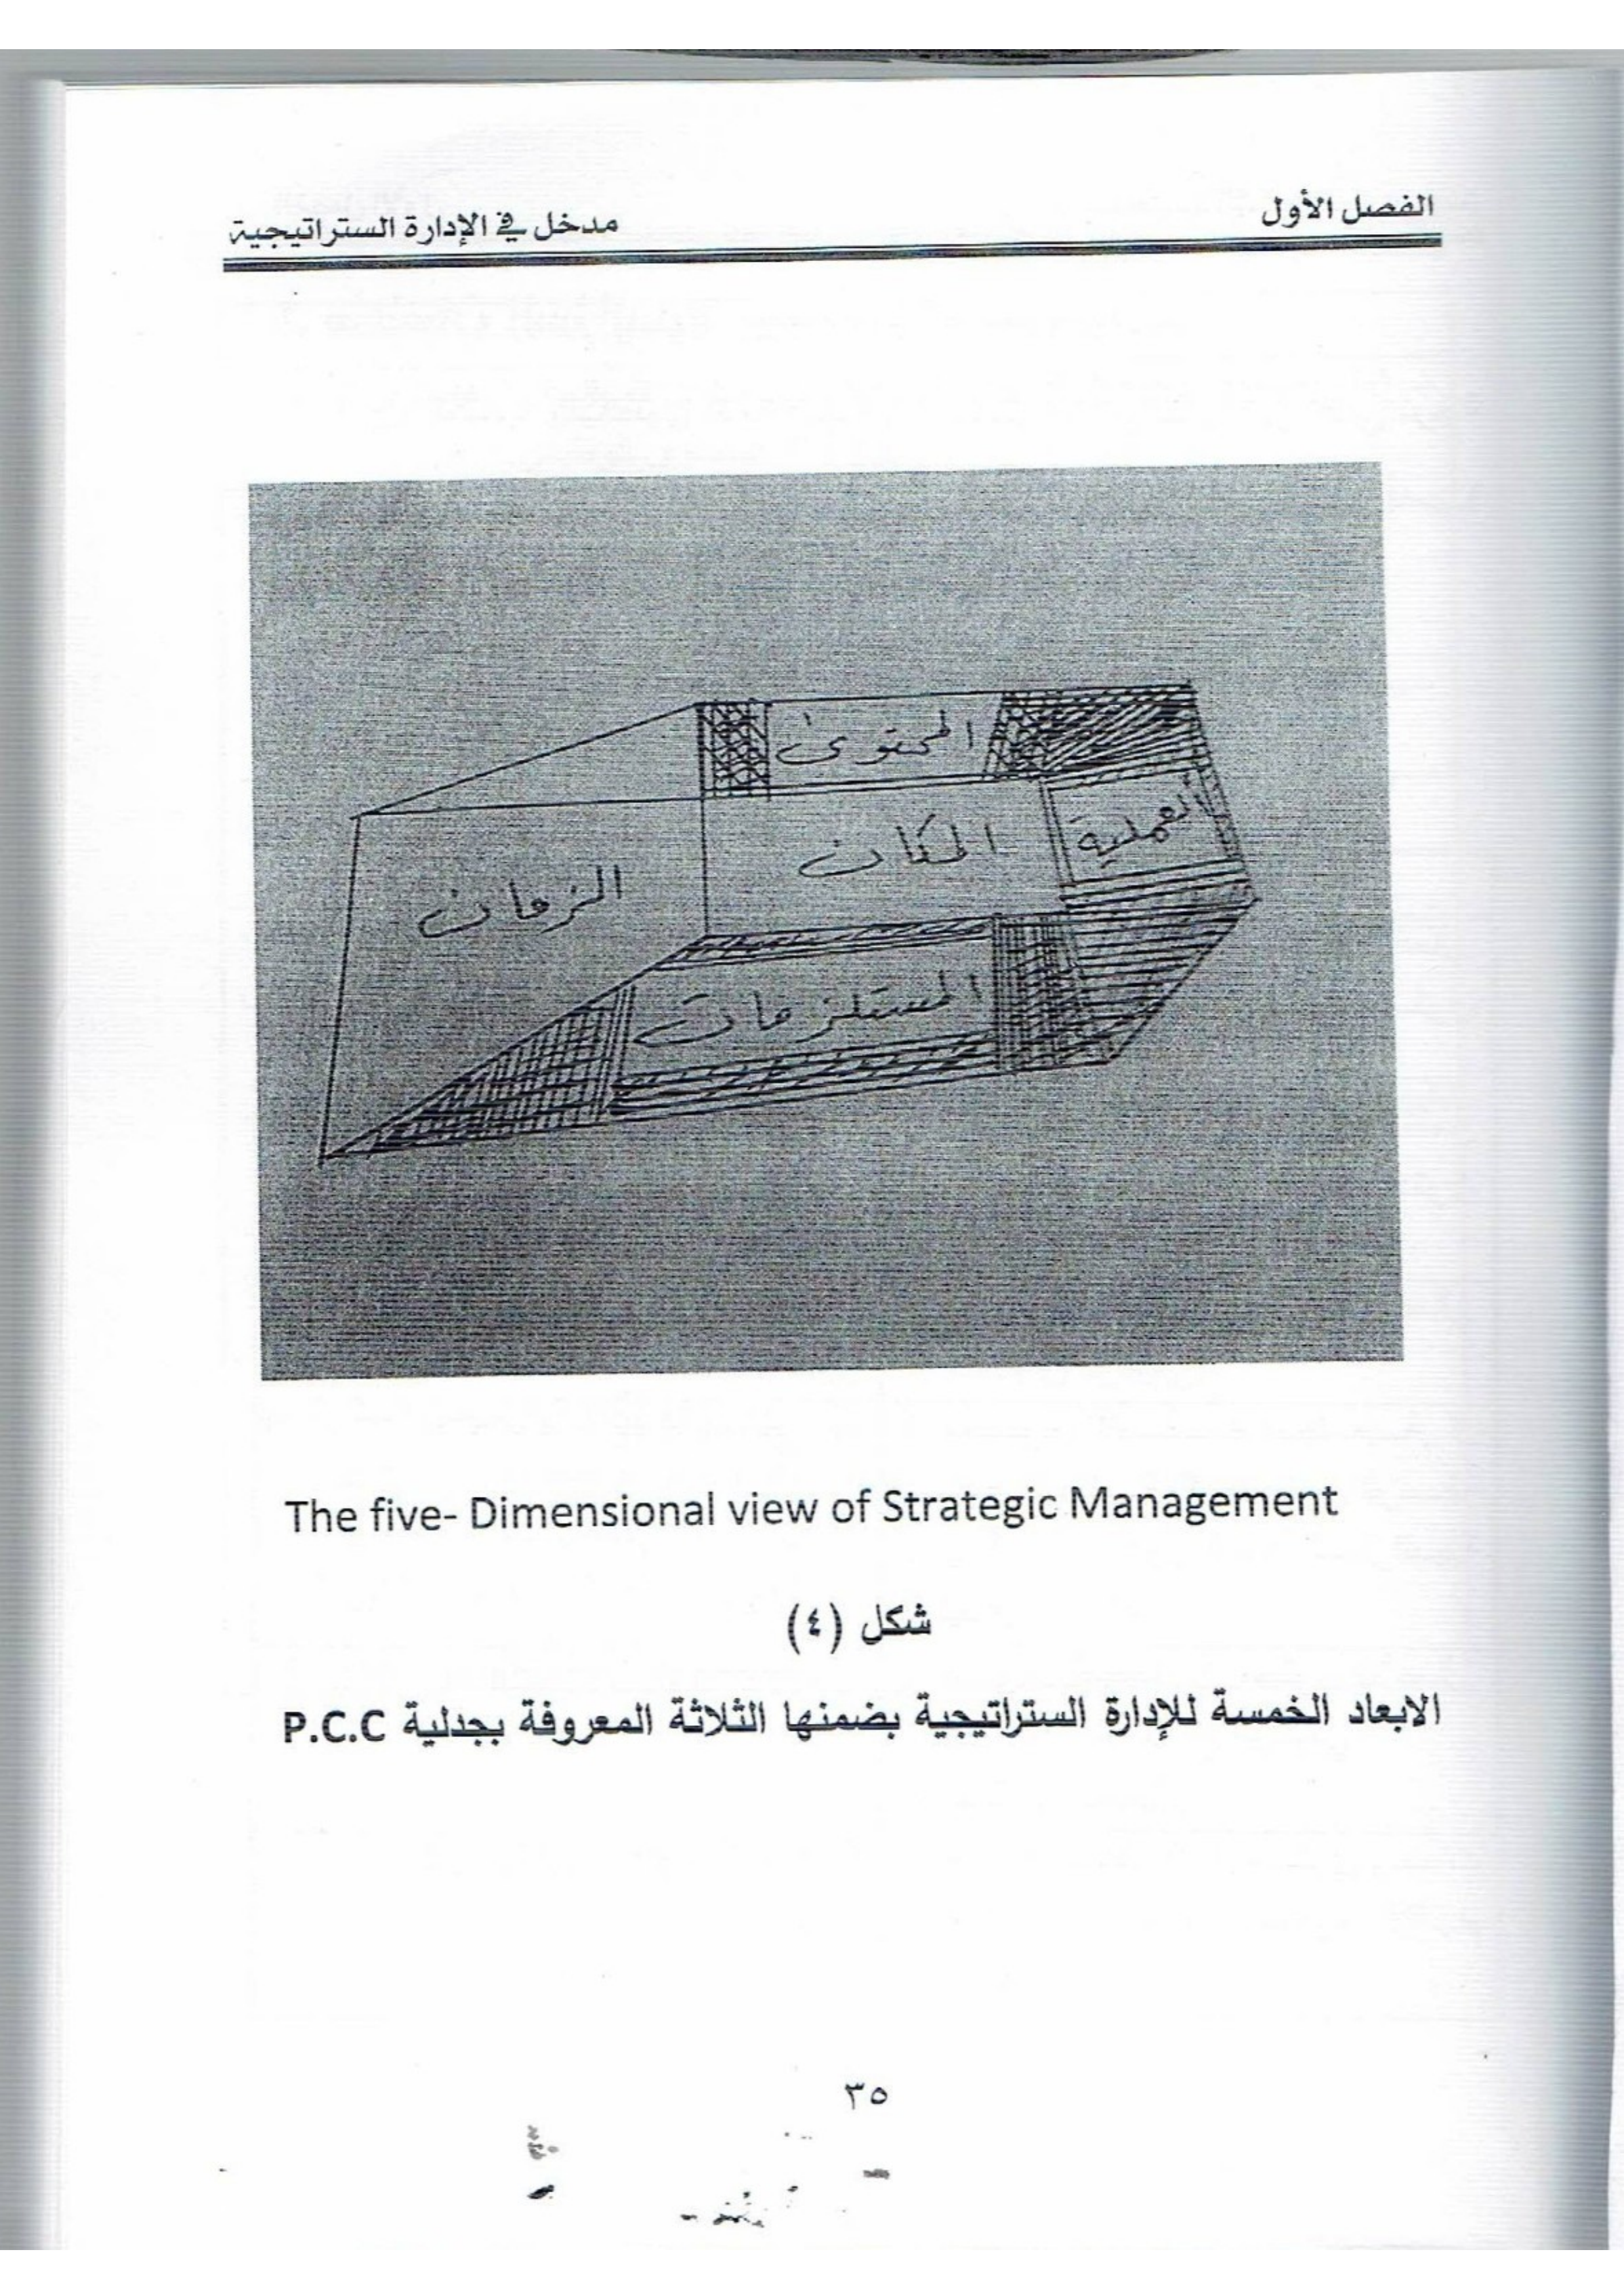 الفصل الأول
مدخل في الإدارة الستراتيجية
المحتوى
العملية
المكان
الزمان
المستلزمات
The five- Dimensional view of Strategic Management
شكل (٤)
الابعاد الخمسة للإدارة الستراتيجية بضمنها الثلاثة المعروفة بجدلية P.C.C
٣٥